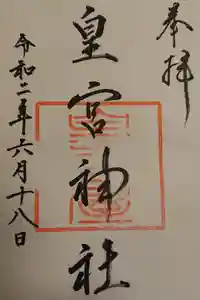 奉拝
皇宮神社
令和二年六月十八日